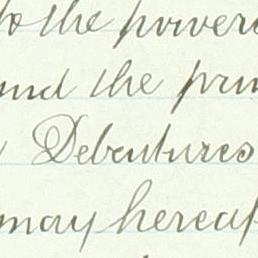 to the powers
and the prin
Debentures
may hereaf